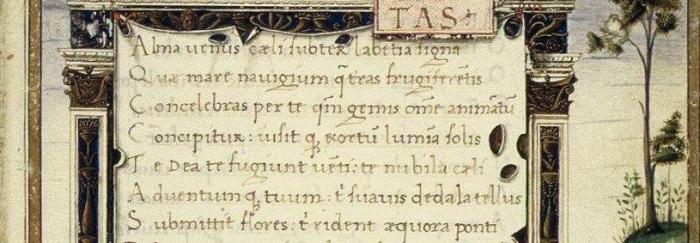 TAS
Alma venus cæli subter labētia signa
Quæ mare navigium q̄ tras frugiferētis
Concelebras per te qm̄ genus om̄e animātū
Concipitur: visit q; exortū lumīa solis
Te Dea te fugiunt vēti: te nubila cæli
Adventum q; tuum: t̄ suavis dedala tellus
Submittit flores: t̄ rident æquora ponti